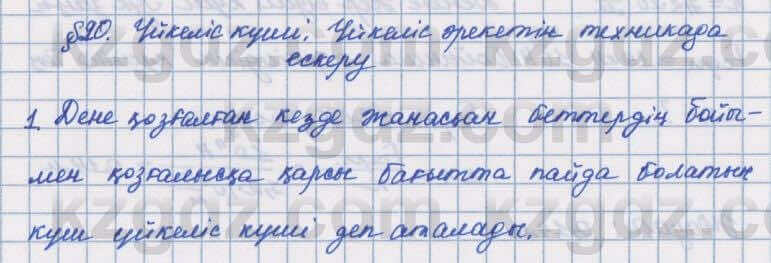 §20. Үйкеліс күші. Үйкеліс әрекетін техникада
ескеру
1. Дене қозғалған кезде жанасқан беттердің бойы-
мен қозғалысқа қарсы бағытта пайда болатын
күш үйкеліс күші деп аталады.